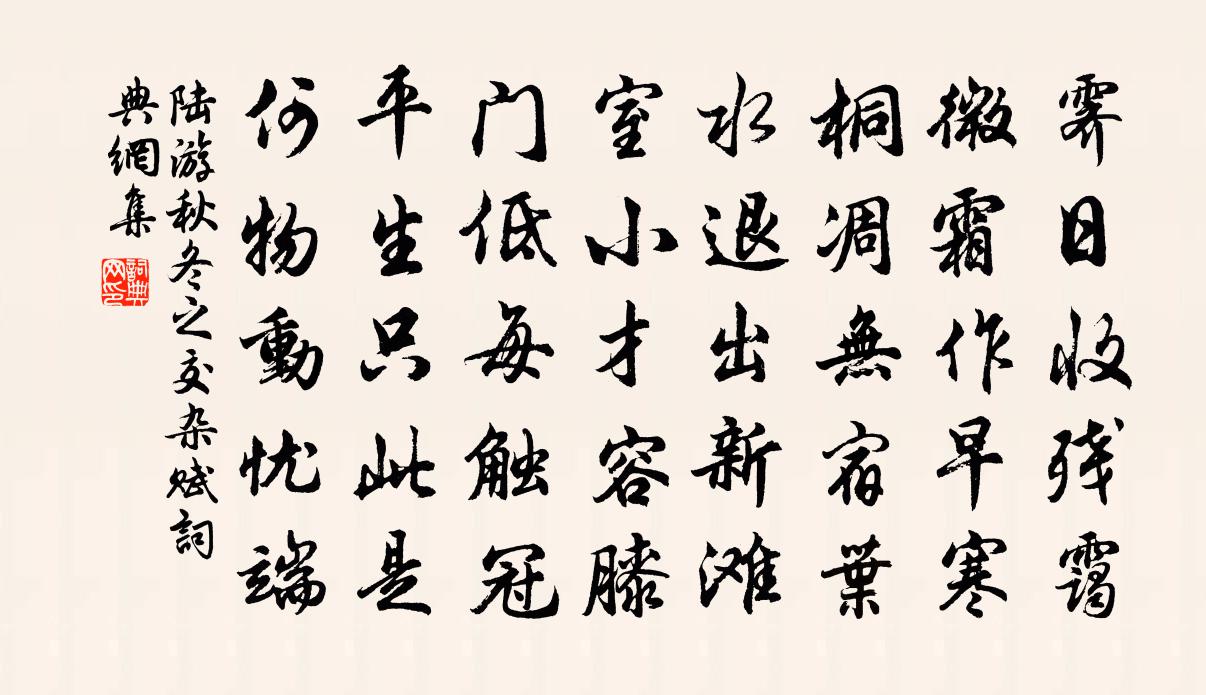 霽日收残靄
微霜作早寒
桐凋無宿葉
水退出新滩
室小才容膝
门低每触冠
平生只此是
何物動忧端
陆游秋冬之交杂赋詞
典網集
詞典
网印